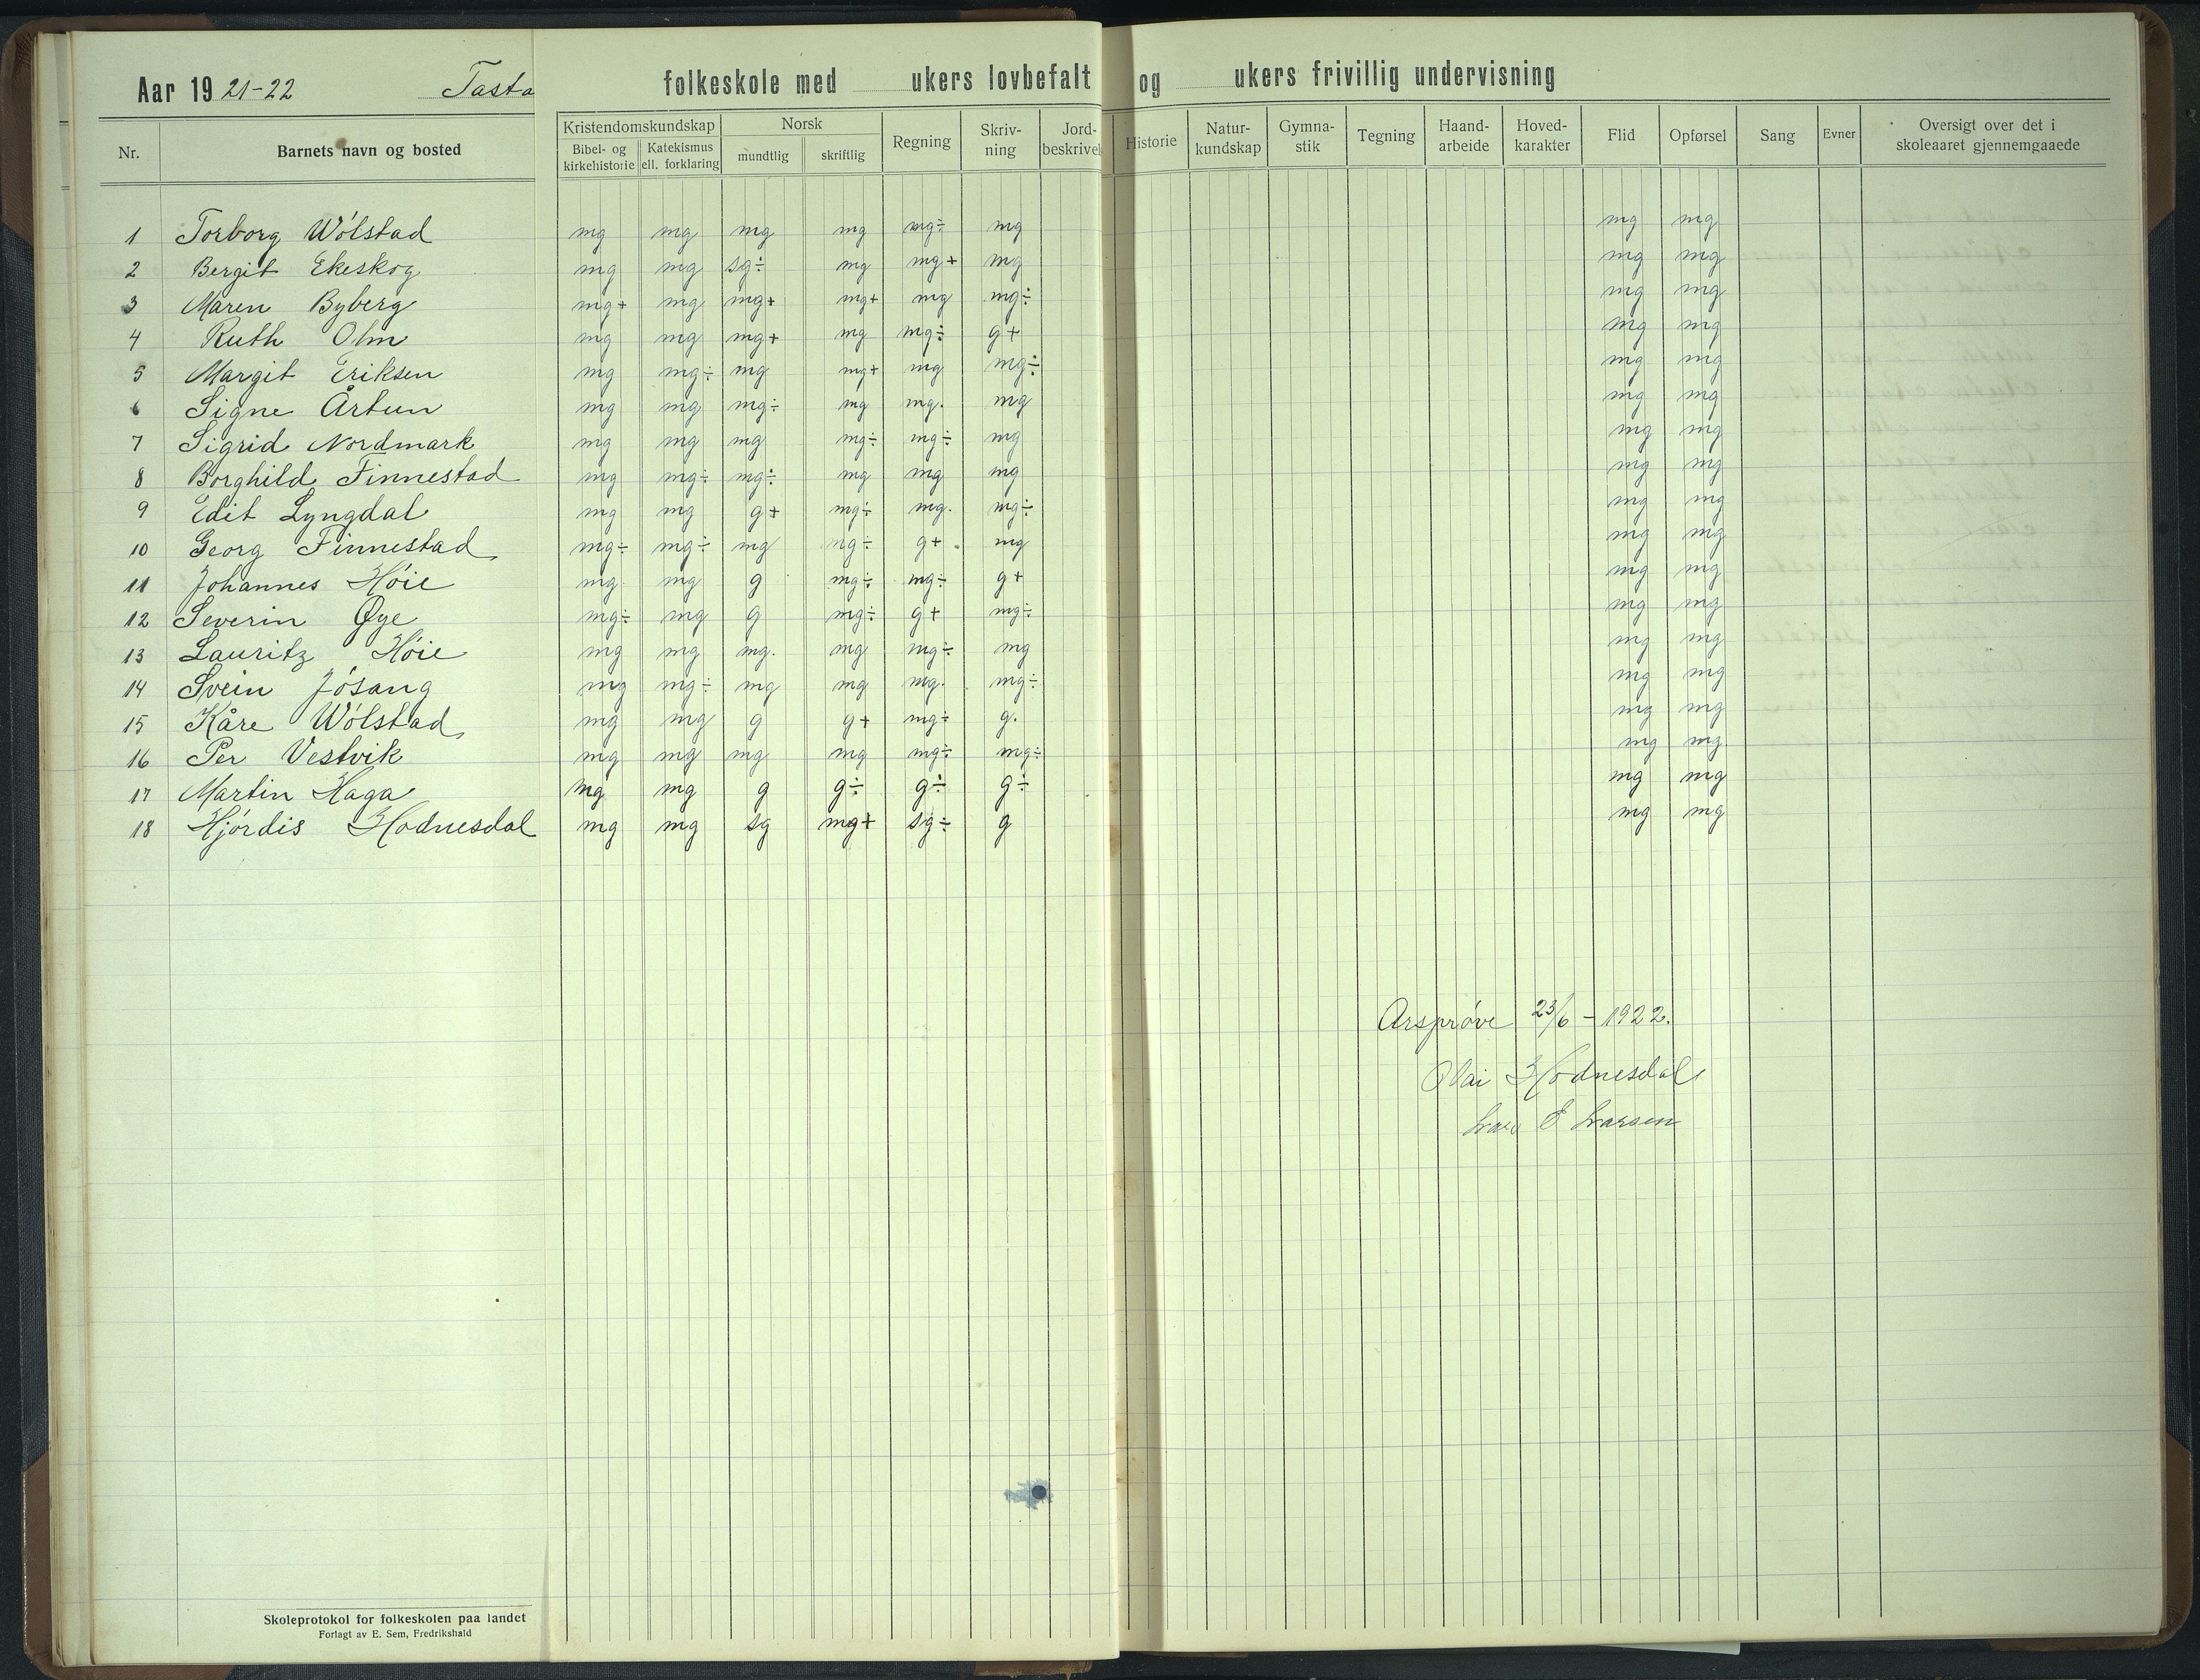 Aar 1921-22 Tasta folkeskole med ukers lovbefalt og ukers frivillig undervisning
Nr. Barnets navn og bosted Kristendomskundskap Norsk Regning Skriv-ning Jord-beskrivel Historie Natur-kundskap Gymna-stik Tegning Haand-arbeide Hoved-karakter Flid Opførsel Sang Evner Oversigt over det i skoleaaret gjennemgaaede
Bibel- og kirkehistorie Katekismus ell. forklaring mundtlig skriftlig
1 Torborg Wólstad mg mg mg mg mg÷ mg mg mg
2 Bergit Ekeskog mg mg sg÷ mg mg+ mg mg mg
3 Maren Byberg mg+ mg mg+ mg+ mg mg÷ mg mg
4 Ruth Olm mg mg mg+ mg mg÷ g+ mg mg
5 Margit Eriksen mg mg÷ mg mg+ mg mg÷ mg mg
6 Signe Årtun mg mg mg÷ mg mg. mg mg mg
7 Sigrid Nordmark mg mg mg mg÷ mg÷ mg mg mg
8 Borghild Finnestad mg mg÷ mg÷ mg mg mg mg mg
9 Edit Lyngdal mg mg g+ mg÷ mg. mg÷ mg mg
10 Georg Finnestad mg÷ mg÷ mg mg÷ g+ mg mg mg
11 Johannes Hóie mg mg g mg÷ mg÷ g+ mg mg
12 Severin Øye mg÷ mg g mg÷ g+ mg÷ mg mg
13 Lauritz Hóie mg mg mg. mg mg÷ mg mg mg
14 Svein Jósang mg mg÷ mg mg mg. mg÷ mg mg
15 Kåre Wólstad mg mg g g+ mg÷ g. mg mg
16 Per Vestvik mg mg mg mg mg÷ mg÷ mg mg
17 Martin Haga mg mg g g÷ g÷ g÷ mg mg
18 Hjórdis Hodnesdal mg mg sg mg+ sg÷ g mg mg
Arspróve 23/6 - 1922.
Olai Hodnesdal
Lars E Larsen
Skoleprotokol for folkeskolen paa landet
Forlagt av E. Sem, Fredrikshald